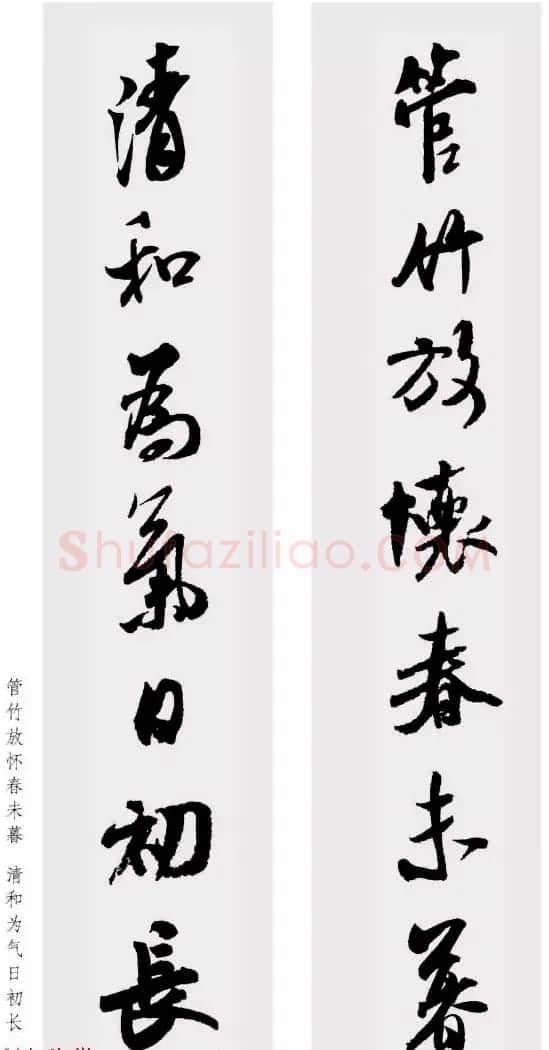 管竹放懷春未暮
清和為氣日初長
管竹放怀春未暮 清和为气日初长
Shufaziliao.COM